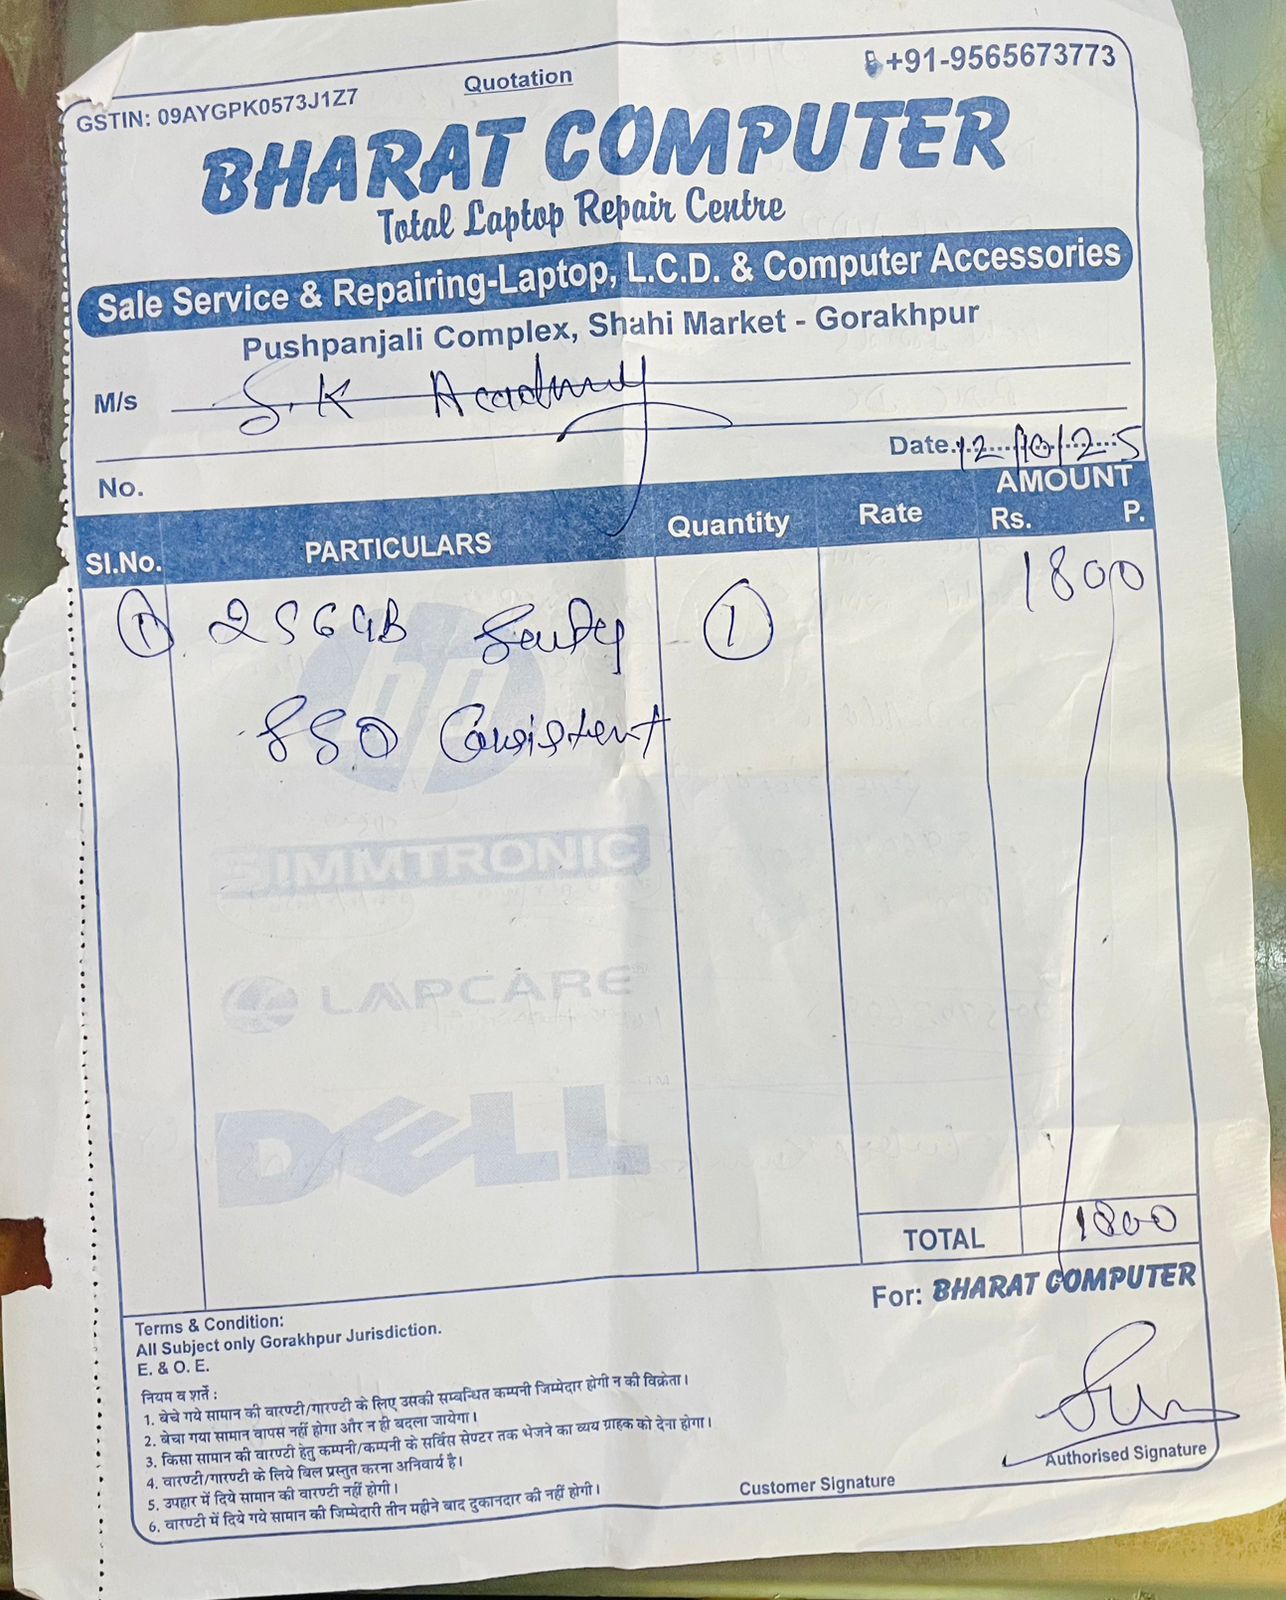 Quotation
+91-9565673773
GSTIN: 09AYGPK0573J1Z7
BHARAT COMPUTER
Total Laptop Repair Centre
Sale Service & Repairing-Laptop, L.C.D. & Computer Accessories
Pushpanjali Complex, Shahi Market - Gorakhpur
M/s S.K Academy
Date. 12/10/25
No.
Sl.No. PARTICULARS Quantity Rate AMOUNT Rs. P.
1 256GB 1 1800
SSD Consistent
hp
SIMMTRONIC
LAPCARE
DELL
TOTAL 1800
For: BHARAT COMPUTER
Terms & Condition:
All Subject only Gorakhpur Jurisdiction.
E. & O. E.
नियम व शर्ते :
1. बेचे गये सामान की वारण्टी/गारण्टी के लिए उसकी सम्बन्धित कम्पनी जिम्मेदार होगी न की विक्रेता।
2. बेचा गया सामान वापस नहीं होगा और न ही बदला जायेगा।
3. किसा सामान की वारण्टी हेतु कम्पनी/कम्पनी के सर्विस सेण्टर तक भेजने का व्यय ग्राहक को देना होगा।
4. वारण्टी/गारण्टी के लिये बिल प्रस्तुत करना अनिवार्य है।
5. उपहार में दिये सामान की वारण्टी नहीं होगी।
6. वारण्टी में दिये गये सामान की जिम्मेदारी तीन महीने बाद दुकानदार की नहीं होगी।
Customer Signature
Authorised Signature